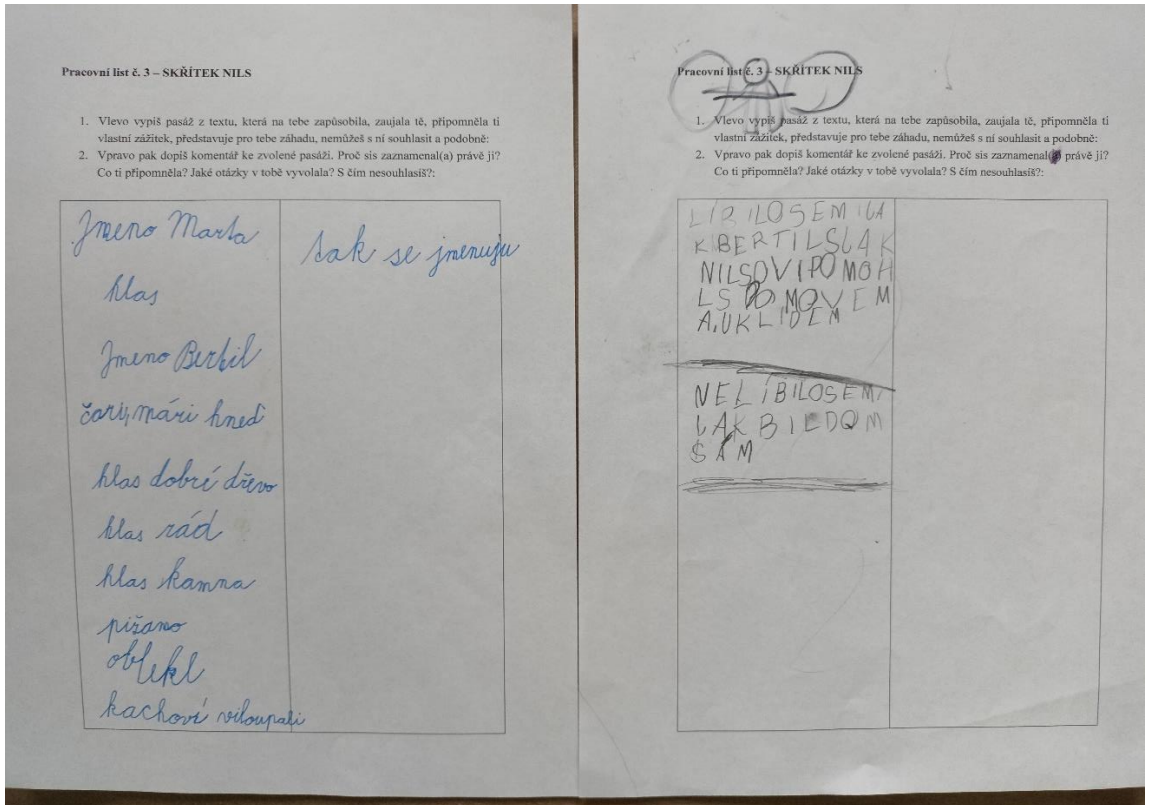 Pracovní list č. 3 – SKŘÍTEK NILS
1. Vlevo vypiš pasáž z textu, která na tebe zapůsobila, zaujala tě, připomněla ti
vlastní zážitek, představuje pro tebe záhadu, nemůžeš s ní souhlasit a podobně:
2. Vpravo pak dopiš komentář ke zvolené pasáži. Proč sis zaznamenal(a) právě ji?
Co ti připomněla? Jaké otázky v tobě vyvolala? S čím nesouhlasíš?:
Jmeno Marta
tak se jmenuju
hlas
Jmeno Bertil
čary,mári hneď
hlas dobré dřevo
hlas rád
hlas kamna
pižamo
oblekl
kachové viloupali
Pracovní list č. 3 – SKŘÍTEK NILS
1. Vlevo vypiš pasáž z textu, která na tebe zapůsobila, zaujala tě, připomněla ti
vlastní zážitek, představuje pro tebe záhadu, nemůžeš s ní souhlasit a podobně:
2. Vpravo pak dopiš komentář ke zvolené pasáži. Proč sis zaznamenal(a) právě ji?
Co ti připomněla? Jaké otázky v tobě vyvolala? S čím nesouhlasíš?:
LÍBILOSEMIJA
KBERTILSJAK
NILSOVIPOMOH
LSDOMOVEM
A.UKLIDEM
NELÍBILOSEMI
JAKBILDOM
SÁM